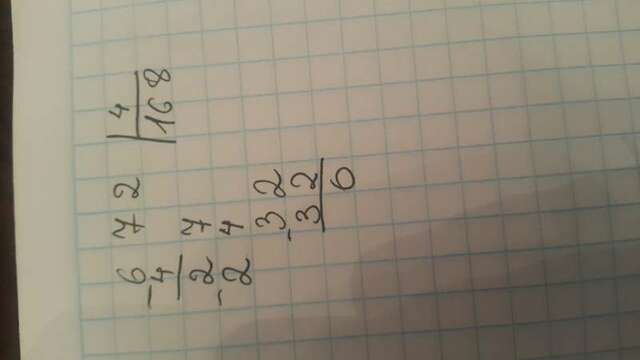 672 4
-4 168
27
-24
32
-32
0